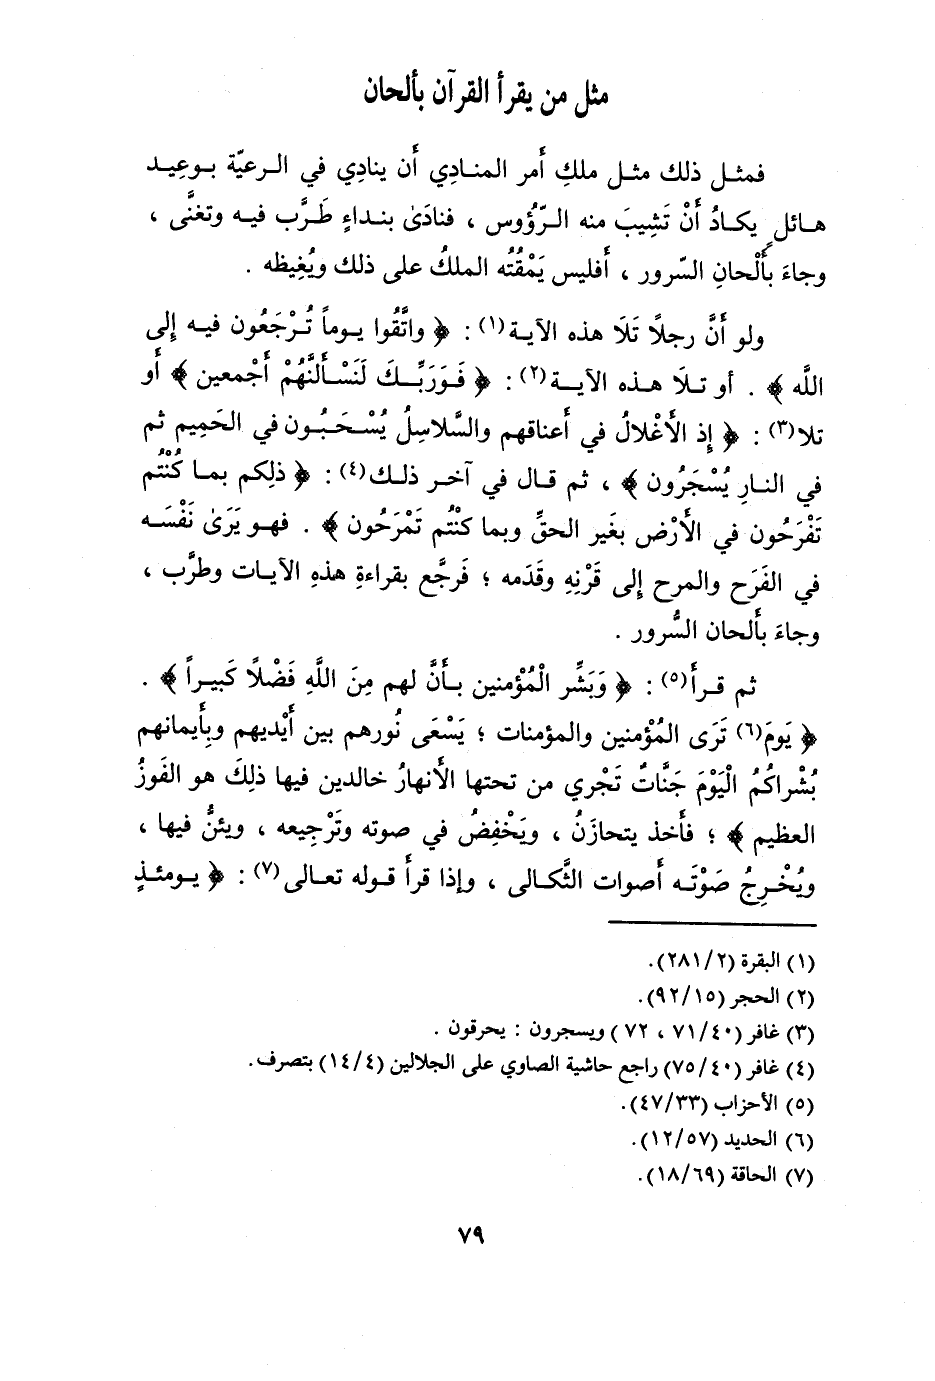 مثل من يقرأ القرآن بألحان
فمثل ذلك مثل ملكِ أَمر المنادِي أَن ينادِي في الرعيّة بوعِيد
هائلٍ يكادُ أَنْ تَشِيبَ منه الرّؤُوس ، فنادَىٰ بنداءٍ طَرَّب فيه وتغنَّى ،
وجاءَ بأَلْحانِ السّرور ، أَفليس يَمْقُتُه الملكُ على ذلك ويُغِيظه .
ولو أَنَّ رجلًا تَلَا هذه الآية(١) : ﴿ واتَّقُوا يوماً تُرْجَعُون فيه إِلى
اللَّه ﴾ . أو تلَا هذه الآية(٢) : ﴿ فَوَرَبِّكَ لَنَسْأَلَنَّهُمْ أَجْمعين ﴾ أَو
تلا(٣) : ﴿ إِذ الأَغْلالُ في أَعناقهم والسَّلاسِلُ يُسْحَبُون في الحَمِيم ثم
في النارِ يُسْجَرُون ﴾ ، ثم قال في آخر ذلك(٤) : ﴿ ذلِكم بما كُنْتُم
تَفْرَحُون في الأَرْض بغَير الحقِّ وبما كنْتُم تَمْرَحُون ﴾ . فهو يَرَىٰ نَفْسَه
في الفَرَح والمرح إِلى قَرْنِهِ وقَدَمه ؛ فَرجَّع بقراءةِ هذهِ الآيات وطرَّب ،
وجاءَ بأَلحان السُّرور .
ثم قرأَ(٥) : ﴿ وَبَشِّر الْمُؤْمنين بأَنَّ لهم مِنَ اللَّهِ فَضْلًا كَبيراً ﴾ .
﴿ يَومَ(٦) تَرَى المُؤْمنين والمؤمنات ؛ يَسْعَى نُورهم بين أَيْديهم وبِأَيمانهم
بُشْراكُمُ الْيَوْمَ جَنَّاتٌ تَجْري من تحتها الأَنهارُ خالدين فيها ذلِكَ هو الفَوزُ
العظيم ﴾ ؛ فأَخذ يتحازَنُ ، ويَخْفِضُ في صوته وتَرْجيعه ، ويئنُّ فيها ،
ويُخْرِجُ صَوْتَه أَصوات الثَّكالى ، وإذا قرأَ قوله تعالى(٧) : ﴿ يومئذٍ
(١) البقرة (٢٨١/٢).
(٢) الحجر (٩٢/١٥).
(٣) غافر (٧١/٤٠ ، ٧٢ ) ويسجرون : يحرقون .
(٤) غافر (٧٥/٤٠) راجع حاشية الصاوي على الجلالين (١٤/٤) بتصرف.
(٥) الأحزاب (٤٧/٣٣).
(٦) الحديد (١٢/٥٧).
(٧) الحاقة (١٨/٦٩).
٧٩